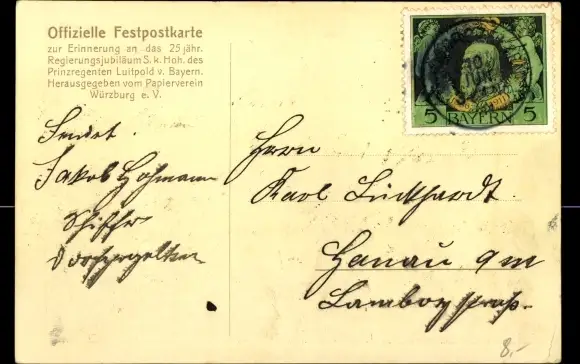 Offizielle Festpostkarte
zur Erinnerung an das 25 jähr.
Regierungsjubiläum S. k. Hoh. des
Prinzregenten Luitpold v. Bayern.
Herausgegeben vom Papierverein
Würzburg e. V.
5 BAYERN 5
Sendet
Jakob Hofmann
Schiffer
Dorfprozelten
Herrn
Karl Luckhardt.
Hanau a m
Lamboystraße.
8.-